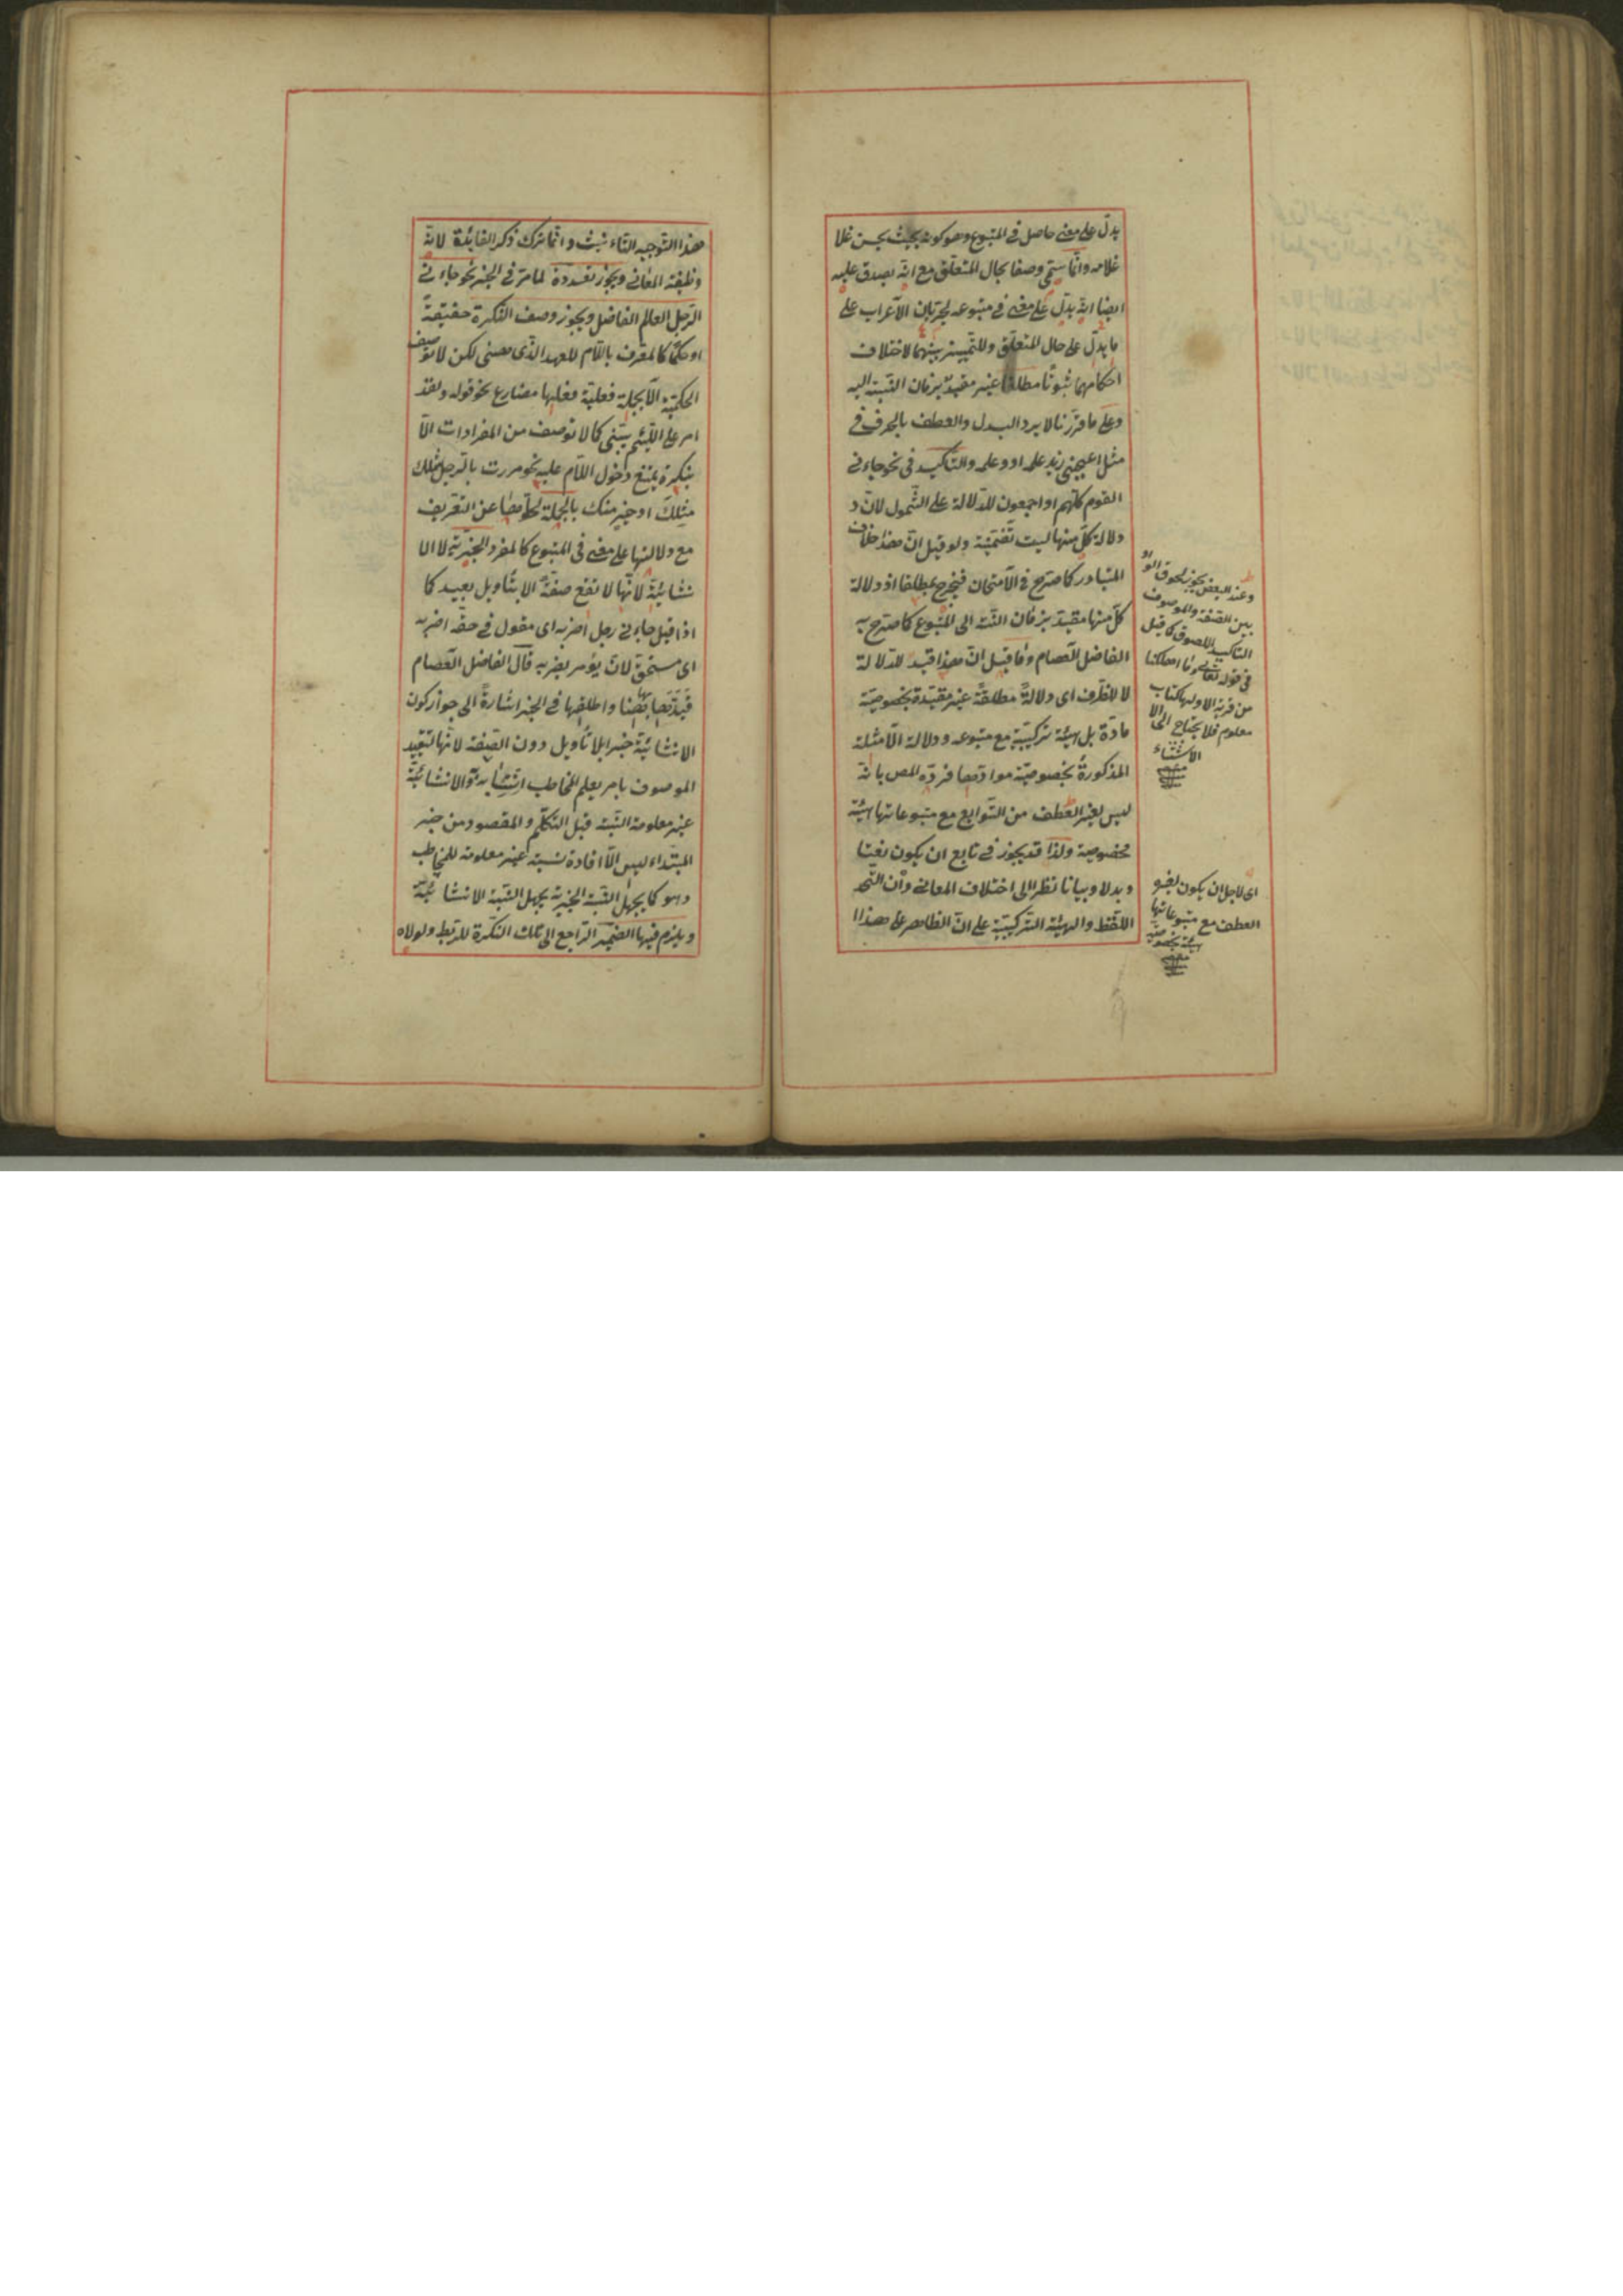 يدلّ على معنى حاصل فى المتبوع وهو كونه بحيث يحسن غلا
غلامه وانّما سمّى وصفا بحال المتعلّق مع انّه يصدق عليه
ايضا انّه يدلّ على معنى فى متبوعه لجريان الاعراب على
ما يدلّ على حال المتعلّق وللتمييز بينهما لاختلاف
احكامهما ثبوتًا مطلقا غير مقيّد بزمان النسبة اليه
وعلى ما قرّرنا لا يرد البدل والعطف بالحرف فى
مثل اعجبنى زيد علمه او وعلمه والتأكيد فى نحو جاءنى
القوم كلّهم او اجمعون للدّلالة على الشّمول لانّ د
دلالة كلّ منها ليست تضمّنيّة ولو قيل انّ هذا خلاف
المتبادر كما صرّح فى الامتحان فيخرج بمطلقا اذ دلالة
كلّ منها مقيّد بزمان النسبة الى المتبوع كما صرّح به
الفاضل العصام وما قيل انّ هذا قيد للدّلالة
لا للظرف اى دلالةً مطلقةً غير مقيّدة بخصوصيّة
مادّة بل بهيئة تركيبيّة مع متبوعه ودلالة الامثلة
المذكورة بخصوصيّة موادّها فردّه المص بانّه
ليس لغير العطف من التّوابع مع متبوعاتها هيئة
مخصوصة ولذا قد يجوز فى تابع ان يكون نعتا
وبدلا وبيانا نظرا الى اختلاف المعانى وان اتّحد
اللّفظ والهيئة التركيبيّة على انّ الظاهر على هذا ا
وعند البعض يجوز لحوق الواو
بين الصفة والموصوف
التاكيد اللصوق كما قيل
فى قوله تعالى وما اهلكنا
من قرية الا ولها كتاب
معلوم فلا يحتاج الى الا
الاستثناء
اى لاجل ان يكون لغير
العطف مع متبوعاتها
هيئة مخصوصة
هذا التوجيه التاء نيث وانّما ترك ذكر الفائدة لانّه
وظيفة المعانى ويجوز تعدده لما مرّ فى الخبر نحو جاءنى
الرّجل العالم الفاضل ويجوز وصف النّكرة حقيقةً
او حكمًا كالمعرّف باللّام للعهد الذّى معنى لكن لا توصف
الحكميّة الّا بجملة فعليّة فعلها مضارع نحو قوله ولقد
امر على اللّئيم يسبّنى كما لا توصف من المفرادات الّا
بنكرة يمتنع دخول اللّام عليه نحو مررت بالرّجل مثلك
مثلك او خير منك بالجملة لخلّوها عن التعريف
مع دلالتها على معنى فى المتبوع كالمفرد الخبريّة لا الا
نشائيّة لانّها لا تقع صفةً الا بتأويل بعيد كما
اذا قيل جاءنى رجل اضربه اى مقول فى حقّه اضربه
اى مستحقّ لان يؤمر بضربه قال الفاضل العصام
قيّدها بها ههنا واطلقها فى الخبر اشارةً الى جواز كون
الانشائيّة خبرا بلا تأويل دون الصّفة لانّها لتقييد
الموصوف بامر يعلم المخاطب اتصافه به والانشائيّة
غير معلومة النّسبة قبل التكلّم والمقصود من خبر
المبتداء ليس الّا افادة نسبته غير معلومة للمخاطب
وهو كما يجهل النّسبة الخبريّة يجهل النّسبة الانشائيّة
ويلزم فيها الضّمير الرّاجع الى تلك النّكرة للرّبط ولولاه